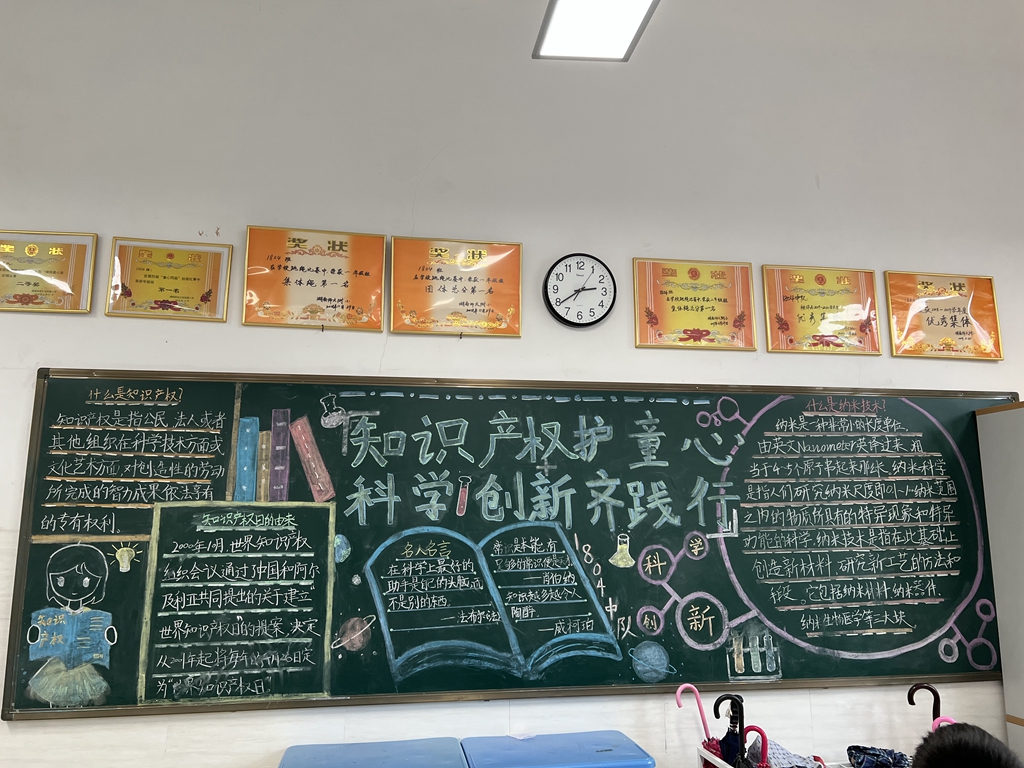 二等奖
第一名
奖状
1804班
在学校跳绳比赛中荣获一年级组
集体绳第一名
奖状
1804班
在学校跳绳比赛中荣获一年级组
团体总分第一名
12
1
2
3
4
5
6
7
8
9
10
11
集体绳第一名
奖状
优秀集体
什么是知识产权?
知识产权是指公民、法人或者
其他组织在科学技术方面或
文化艺术方面,对创造性的劳动
所完成的智力成果依法享有
的专有权利.
知识产权日的由来
2000年10月,世界知识产权
组织会议通过中国和阿尔
及利亚共同提出的关于建立"
世界知识产权日"的提案,决定
从2001年起将每年4月26日定
为"世界知识产权日".
知识
产权
知识产权护童心
科学创新齐践行
名人名言
在科学上最好的
助手是自己的头脑,而
不是别的东西.
——法布尔
——肖伯纳
陶醉.
——威柯珀
1804中队
科
学
创
新
什么是纳米技术?
纳米是一种非常小的长度单位,
由英文Nanometer英译过来,相
当于4-5个原子串起来那么长,纳米科学
是指人们研究纳米尺度即0.1-1纳米范围
之内的物质所具有的特异现象和特异
功能的科学,纳米技术是指在此基础上
创造新材料,研究新工艺的方法和
手段,它包括纳米材料,纳米器件,
纳米生物医学等三大块.